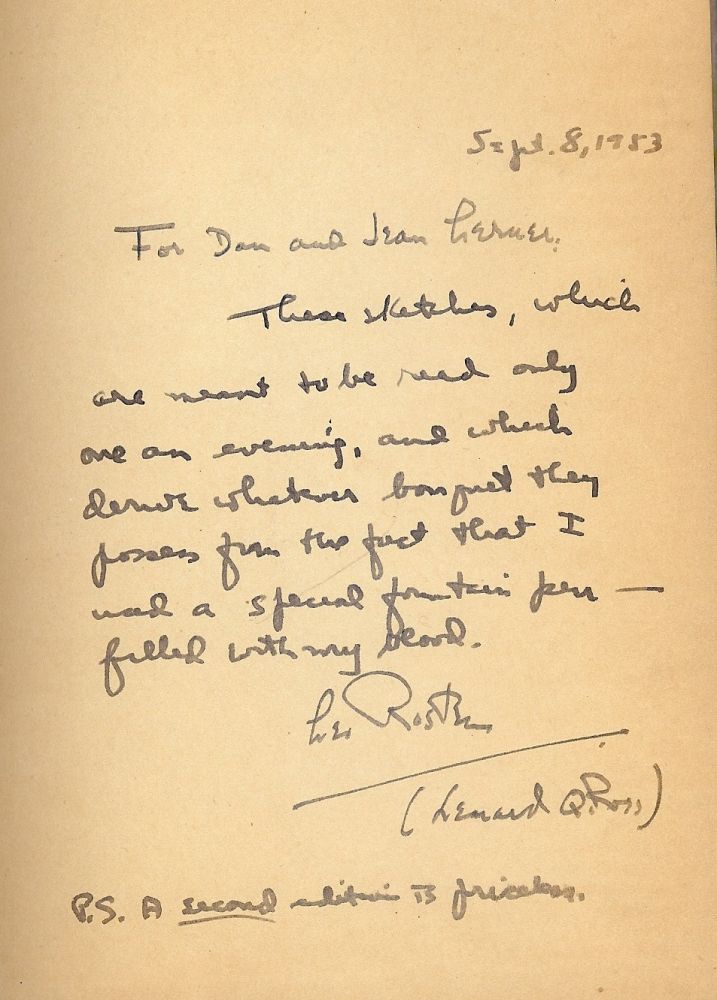 Sept. 8, 1953
For Dan and Jean Lerner,
These sketches, which
are meant to be read only
one an evening, and which
derive whatever bouquet they
possess from the fact that I
used a special fountain pen —
filled with my blood.
Leo Rosten
(Leonard Q. Ross)
P.S. A second edition is priceless.